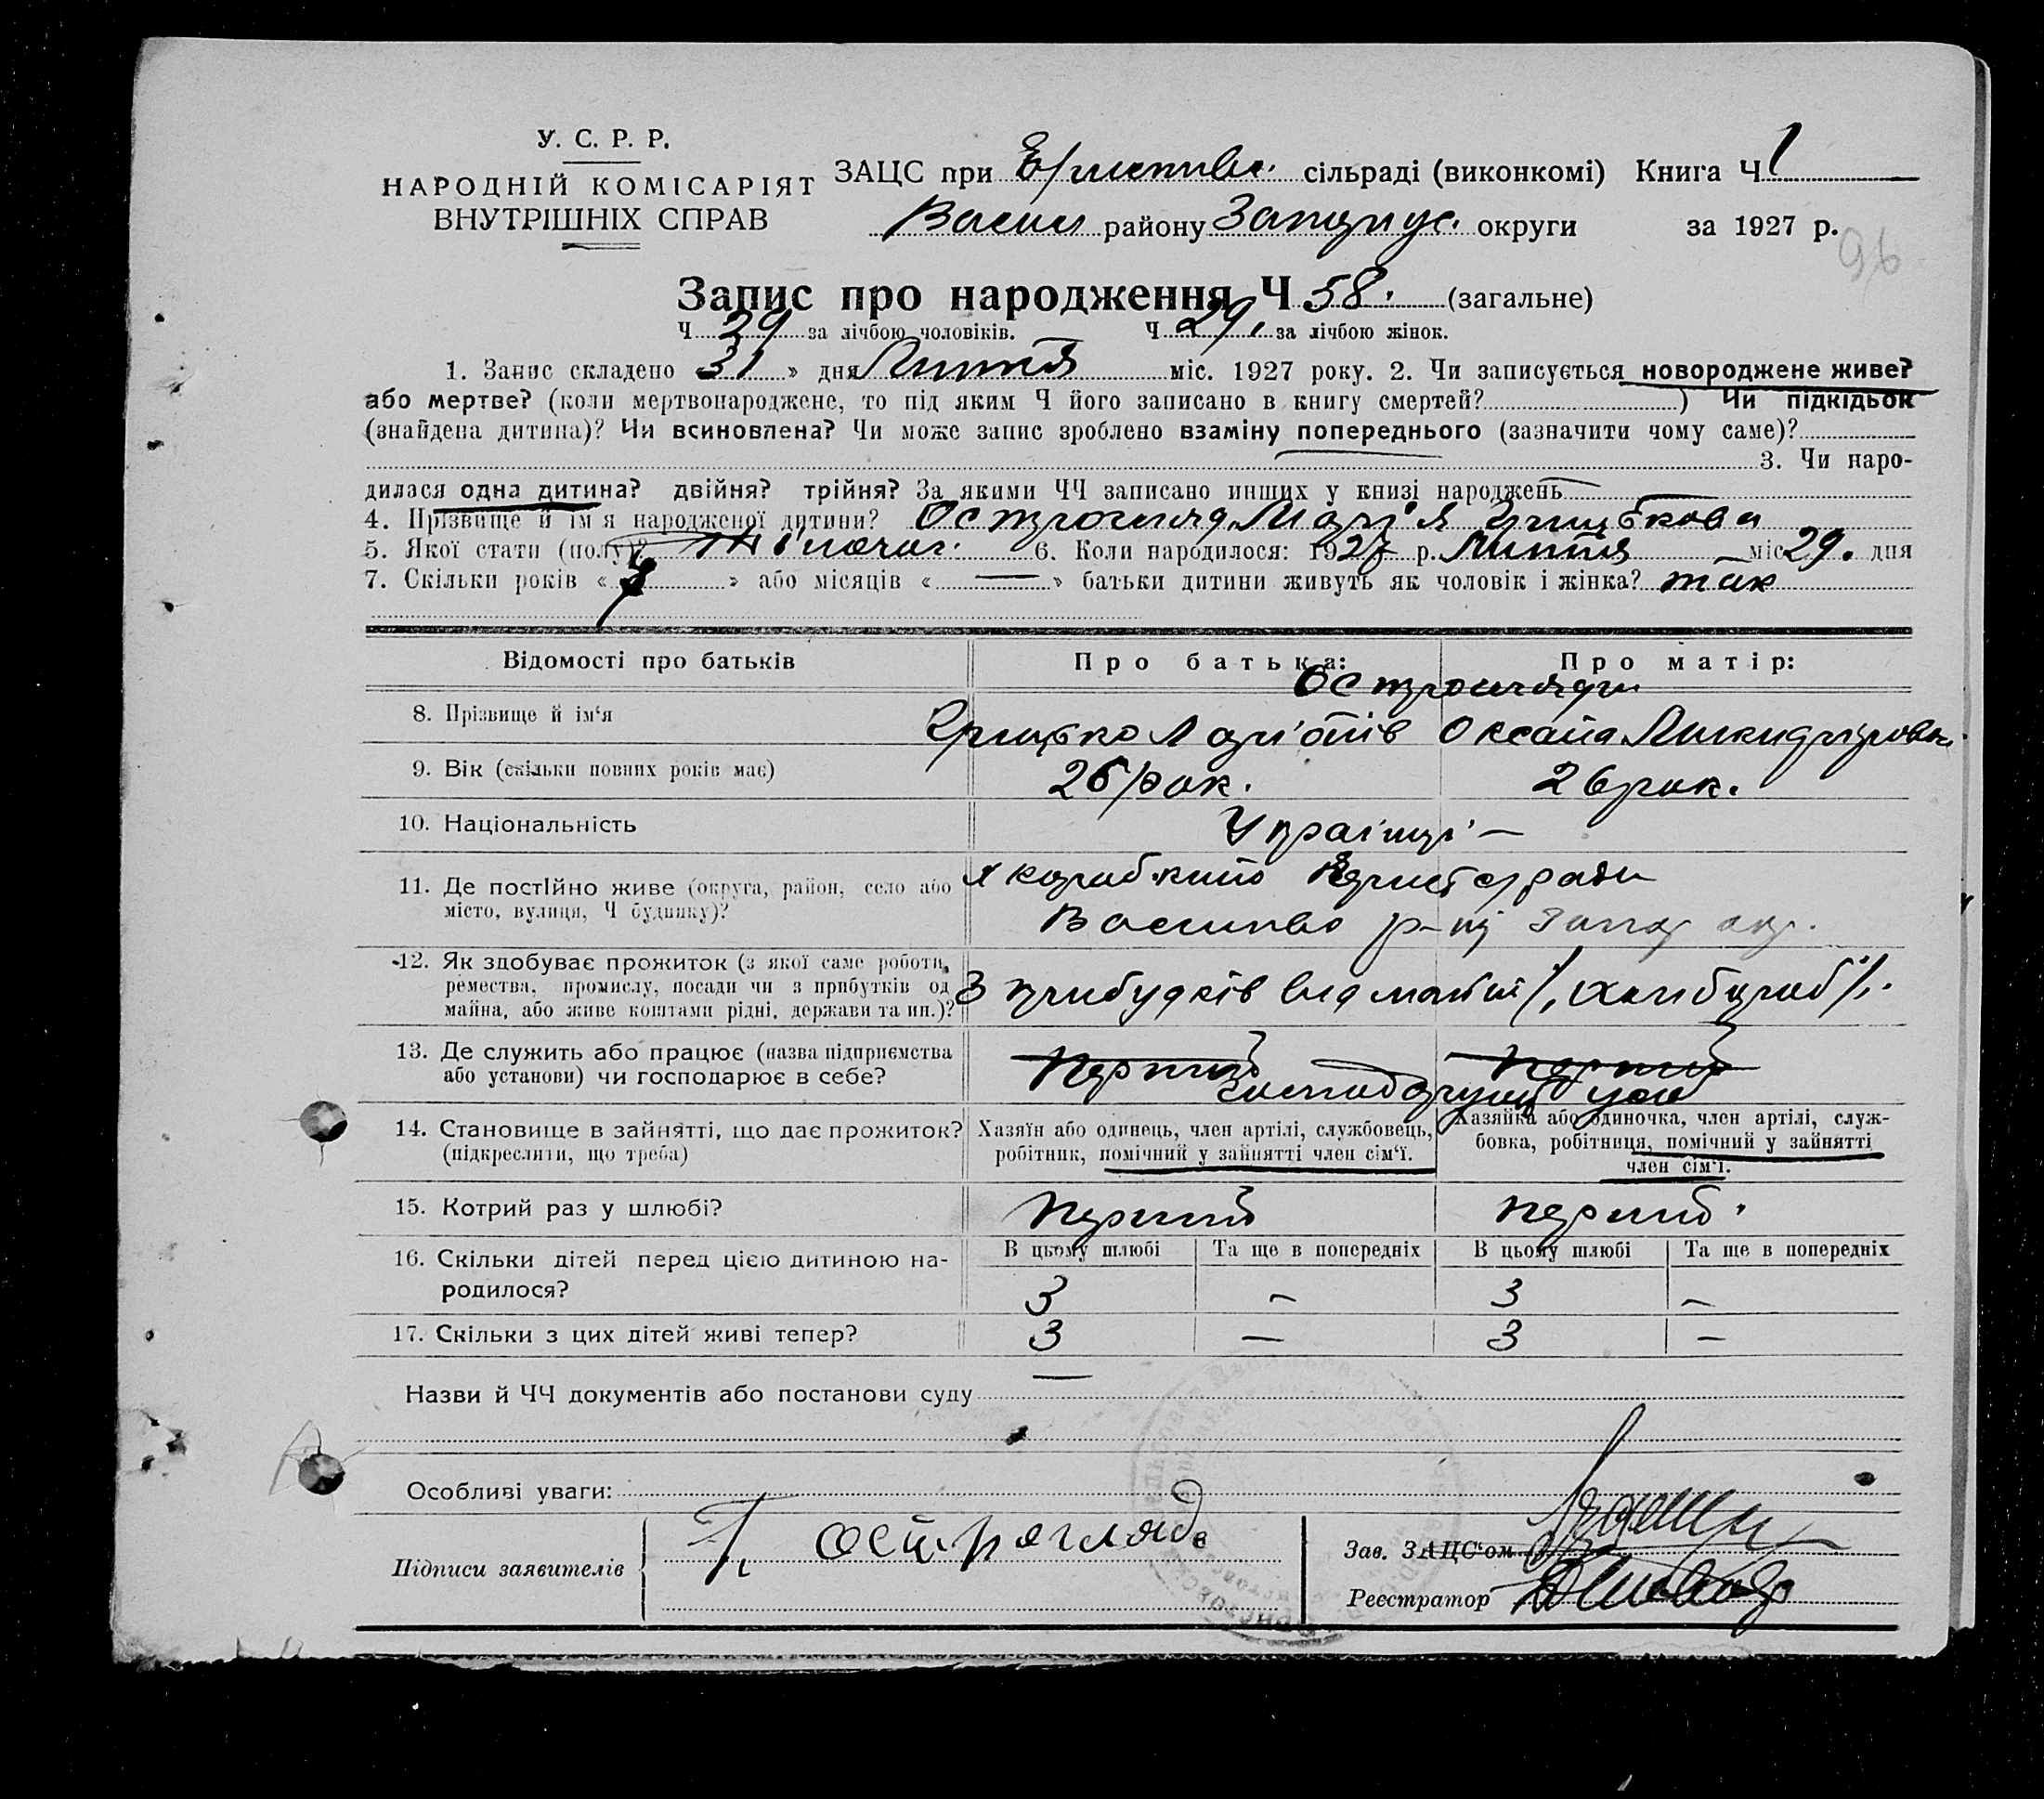 У. С. Р. Р.
НАРОДНІЙ КОМІСАРІЯТ
ВНУТРІШНІХ СПРАВ
ЗАЦС при сільраді (виконкомі) Книга Ч 1
Васил району округи за 1927 р.
96
Запис про народження Ч 58. (загальне)
Ч 29 за лічбою чоловіків. Ч 29. за лічбою жінок.
1. Запис складено 31 » дня Липня міс. 1927 року. 2. Чи записується новороджене живе?
або мертве? (коли мертвонароджене, то під яким Ч його записано в книгу смертей? ) Чи підкідьок
(знайдена дитина)? Чи всиновлена? Чи може запис зроблено взаміну попереднього (зазначити чому саме)?
3. Чи наро-
дилася одна дитина? двійня? трійня? За якими ЧЧ записано инших у книзі народжень
4. Прізвище й ім'я народженої дитини? Острогляд Марія Грицькова
5. Якої стати (полу)? Жіночог. 6. Коли народилося: 1927 р. Липня міс 29. дня
7. Скільки років « » або місяців « — » батьки дитини живуть як чоловік і жінка? так
Відомості про батьків Про батька: Про матір:
Острогляди
8. Прізвище й ім'я Грицько Оксана
9. Вік (скільки повних років має) 26 рок. 26 рок.
10. Національність Українці —
11. Де постійно живе (округа, район, село або
місто, вулиця, Ч будинку)?
р-ну Запор окр.
12. Як здобуває прожиток (з якої саме роботи,
ремества, промислу, посади чи з прибутків од
майна, або живе коштами рідні, держави та ин.)?
З прибутків від
13. Де служить або працює (назва підприємства
або установи) чи господарює в себе?
Перший Перший
14. Становище в зайнятті, що дає прожиток?
(підкреслити, що треба)
Хазяїн або одинець, член артілі, службовець,
робітник, помічний у зайнятті член сім'ї.
Хазяйка або одиночка, член артілі, служ-
бовка, робітниця, помічний у зайнятті
член сім'ї.
15. Котрий раз у шлюбі? Перший Перший.
16. Скільки дітей перед цією дитиною на-
родилося?
В цьому шлюбі Та ще в попередніх В цьому шлюбі Та ще в попередніх
3 – 3 –
17. Скільки з цих дітей живі тепер? 3 — 3 –
Назви й ЧЧ документів або постанови суду —
Особливі уваги:
Підписи заявителів Г. Остроглядъ
Зав. ЗАЦС'ом
Реєстратор